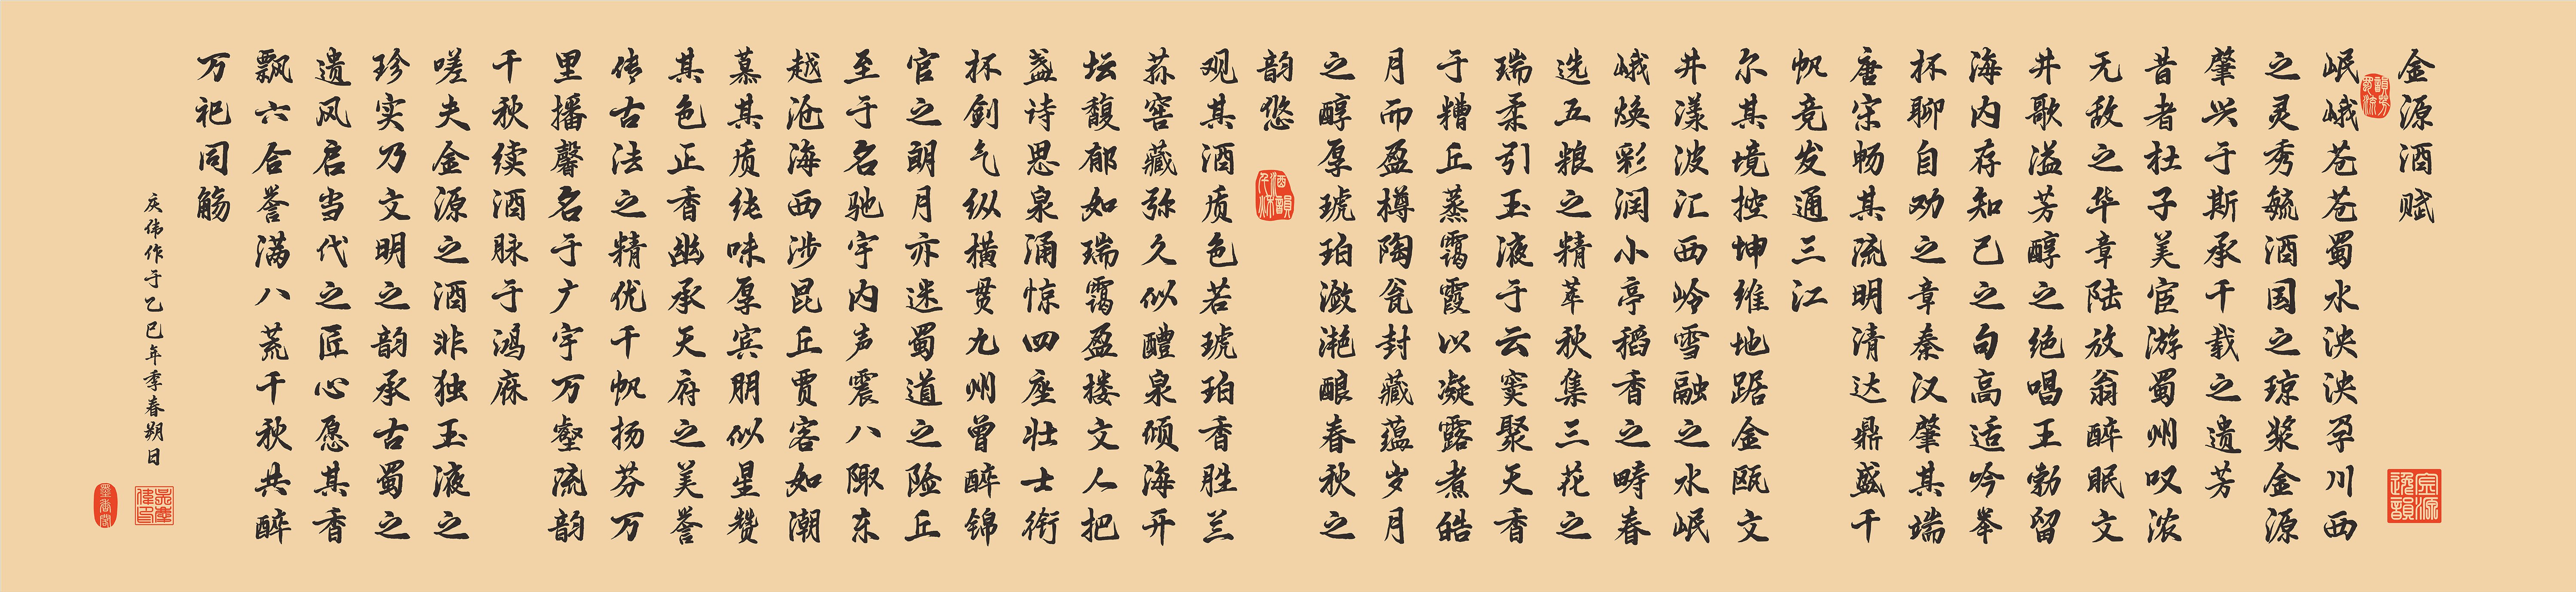 金源酒赋
岷峨苍苍蜀水泱泱孕川西
之灵秀毓酒国之琼浆金源
肇兴于斯承千载之遗芳
昔者杜子美宦游蜀州叹浓
无敌之华章陆放翁醉眠文
井歌溢芳醇之绝唱王勃留
海内存知己之句高适吟举
杯聊自劝之章秦汉肇其端
唐宋畅其流明清达鼎盛千
帆竞发通三江
尔其境控坤维地踞金瓯文
井漾波汇西岭雪融之水岷
峨焕彩润小亭稻香之畴春
选五粮之精萃秋集三花之
瑞柔引玉液于云窦聚天香
于糟丘蒸霭霞以凝露煮皓
月而盈樽陶瓮封藏蕴岁月
之醇厚琥珀潋滟酿春秋之
韵悠
观其酒质色若琥珀香胜兰
荪窖藏弥久似醴泉倾海开
坛馥郁如瑞霭盈楼文人把
盏诗思泉涌惊四座壮士衔
杯剑气纵横贯九州曾醉锦
官之朗月亦迷蜀道之险丘
至于名驰宇内声震八陬东
越沧海西涉昆丘贾客如潮
慕其质纯味厚宾朋似星赞
其色正香幽承天府之美誉
传古法之精优千帆扬芬万
里播馨名于广宇万壑流韵
千秋续酒脉于鸿庥
嗟夫金源之酒非独玉液之
珍实乃文明之韵承古蜀之
遗风启当代之匠心愿其香
飘六合誉满八荒千秋共醉
万祀同觞
庆伟作于乙巳年季春朔日